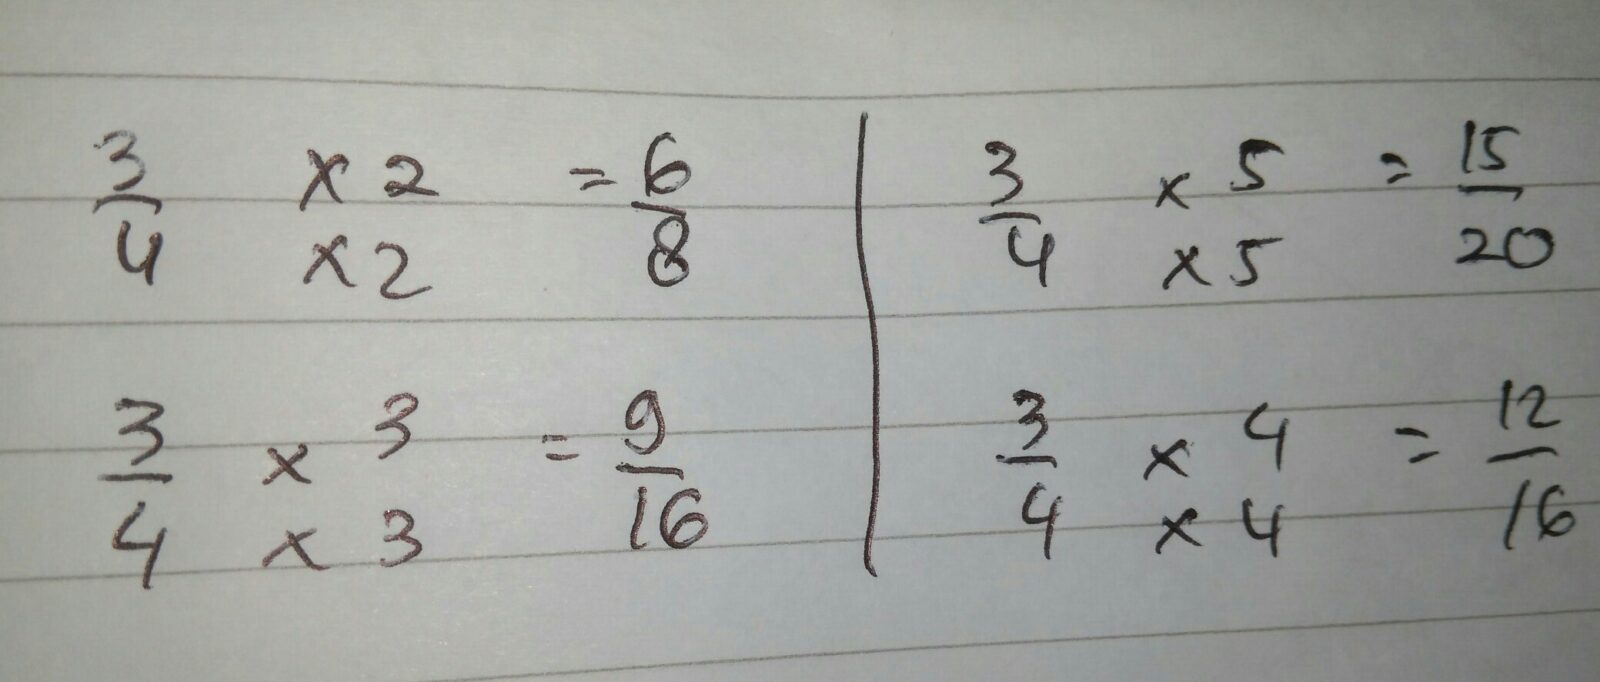 3/4 ×2/×2 = 6/8
3/4 ×3/×3 = 9/16
3/4 ×5/×5 = 15/20
3/4 ×4/×4 = 12/16